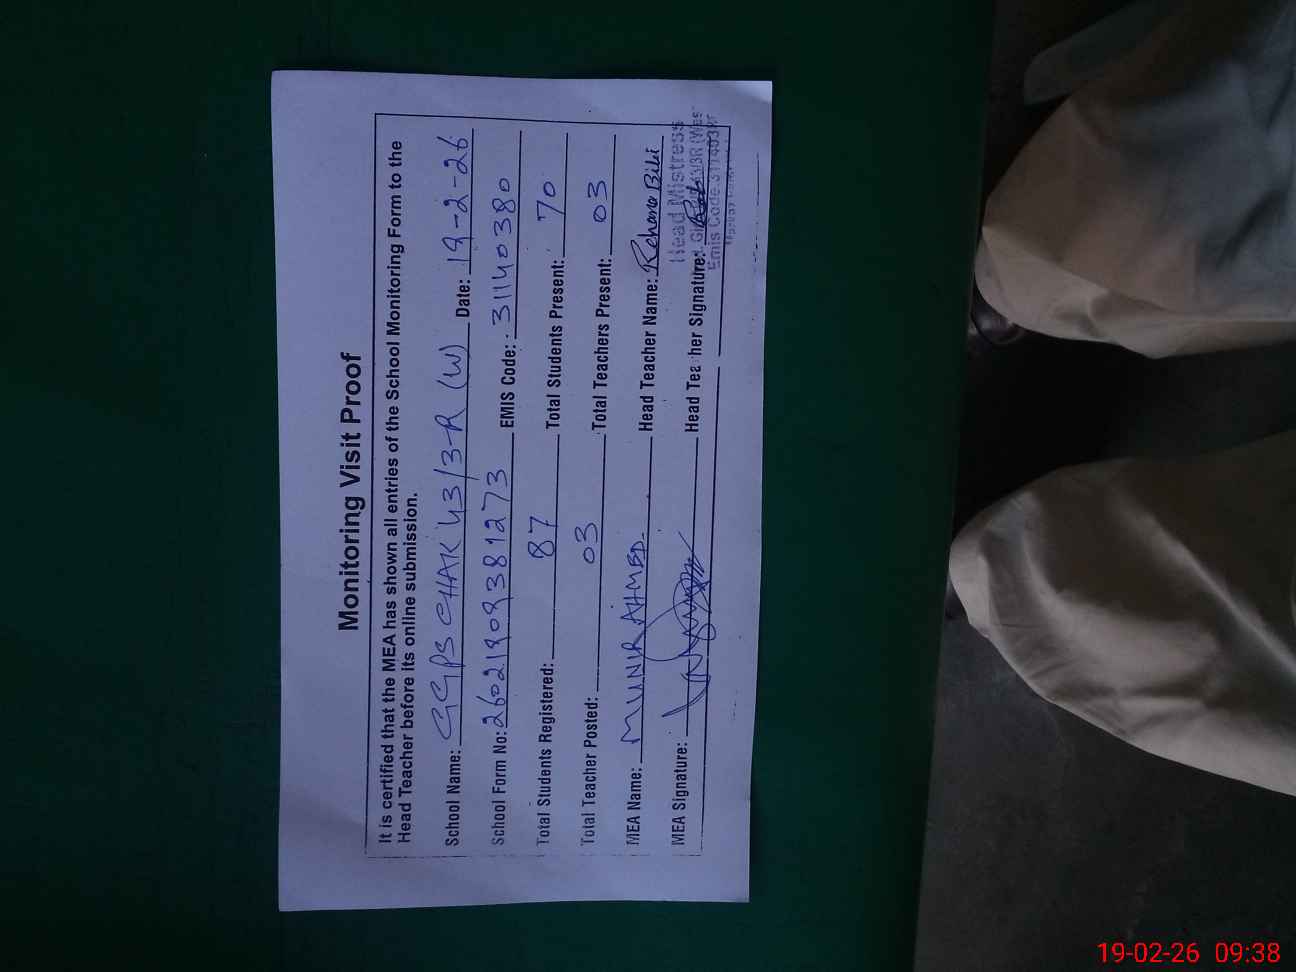 Monitoring Visit Proof
It is certified that the MEA has shown all entries of the School Monitoring Form to the
Head Teacher before its online submission.
School Name: GGPS CHAK 43/3-R (W) Date: 19-2-26
School Form No: 26021909381273 EMIS Code: 31140380
Total Students Registered: 87 Total Students Present: 70
Total Teacher Posted: 03 Total Teachers Present: 03
MEA Name: MUNIR AHMED. Head Teacher Name: Rehana Bibi
MEA Signature: Head Teacher Signature:
Head Mistress
Emis Code
19-02-26 09:38